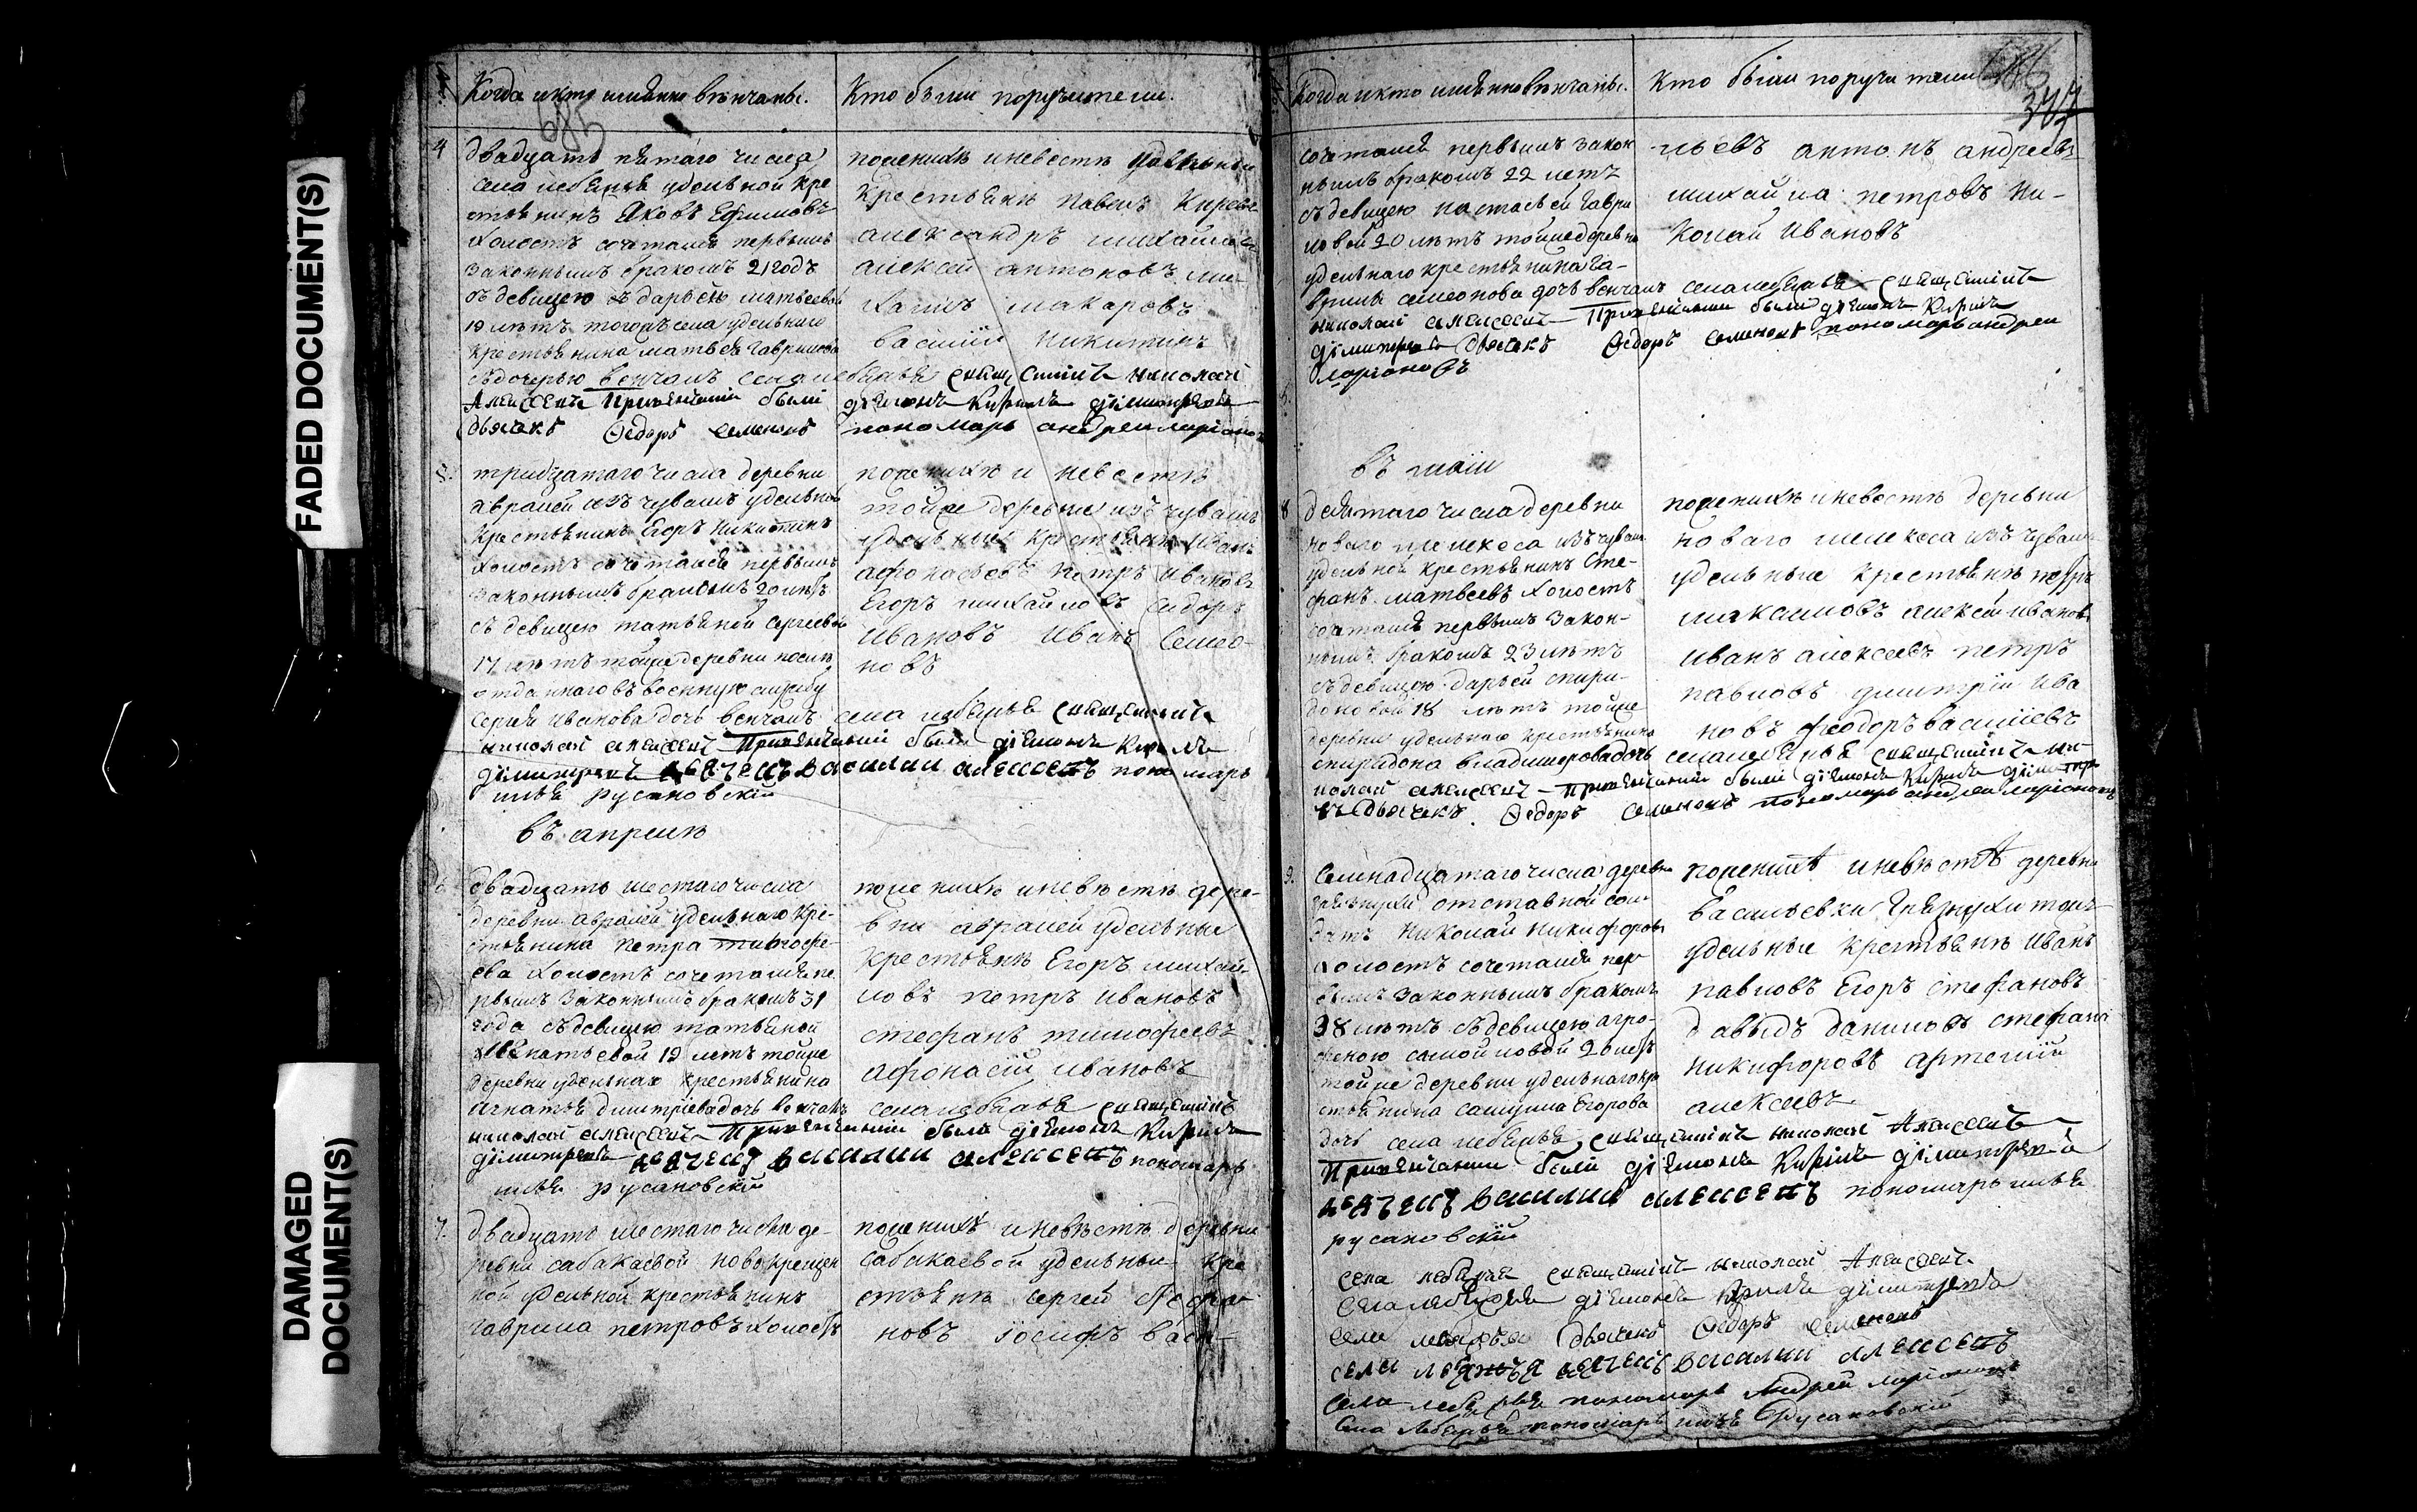 FADED DOCUMENT(S)
DAMAGED
DOCUMENT(S)
Когда и кто имянно венчаны.
Кто были поручители.
685
4
двадцать пятаго числа
села лебяжья удельной кре
стьянинъ Яковъ Ефимовъ
холостъ сочетался первымъ
законнымъ бракомъ 21 годъ
съ девицею дарьею матвеевой
19 летъ тогожъ села удельнаго
крестьянина матвея гаврилова
съ дочерью венчалъ села лебяжья священникъ николай
Алексеевъ При венчании были дияконъ Кирилъ димитриевъ
дьячекъ Ѳедоръ Семеновъ пономарь андреи ларионовъ
по женихе и невесте удельныи
крестьяне павелъ
александръ михайловъ
алексей антоновъ ми
хаилъ макаровъ
василий никитинъ
5.
тридцатаго числа деревни
авралей изъ чувашъ удельной
крестьянинъ Егоръ Никитинъ
холостъ сочетался первымъ
законнымъ бракомъ 20 летъ
съ девицею татьяной сергеевой
17 летъ тойже деревни
отданнаго въ военную службу
сергея Иванова дочь венчалъ села лебяжья священникъ
николай алексеевъ При венчании были дияконъ Кирилъ
димитриевъ дьячекъ василии алексеевъ пономарь
илья русановский
по женихе и невесте
тойже деревни изъ чувашъ
удельные крестьяне Иванъ
афонасьевъ петръ Ивановъ
Егоръ михайловъ Сидоръ
Ивановъ Иванъ Семео-
новъ
въ апреле
6.
двадцать шестаго числа
деревни авралей удельнаго кре-
стьянина петра тимофе-
ева холостъ сочетался пе
рвымъ законнымъ бракомъ 31
года съ девицею татьяной
игнатьевой 19 летъ тойже
деревни удельнаго крестьянина
игнатья дмитриева дочь венчалъ села лебяжья священникъ
николай алексеевъ При венчании были дияконъ Кирилъ
димитриевъ дьячекъ василии алексеевъ пономарь
илья русановский
по женихе и невесте дере-
вни авралей удельные
крестьяне Егоръ михай
ловъ петръ Ивановъ
стефанъ тимофеевъ
афонасий ивановъ
7.
двадцать шестаго числа де-
ревни сабакаевой новокрещен
ной удельной крестьянинъ
гаврила петровъ холостъ
по женихе и невесте деревни
сабакаевой удельныи кре
стьяне сергей
новъ иосифъ васи-
Когда и кто имянно венчаны.
Кто были поручители
686
сочетался первымъ закон
нымъ бракомъ 22 летъ
съ девицею настасьей гаври
ловой 20 летъ тойже деревни
удельнаго крестьянина га-
врилы семеонова дочь венчалъ села лебяжья священникъ
николай алексеевъ При венчании были дияконъ Кирилъ
димитриевъ дьячекъ Ѳедоръ Семеновъ пономарь андреи
ларионовъ
-льевъ антонъ андреевъ
михайла петровъ ни-
колай ивановъ
въ маии
8
девятаго числа деревни
новаго мелекеса изъ чувашъ
удельной крестьянинъ Сте-
фанъ матвеевъ холостъ
сочетался первымъ закон-
нымъ бракомъ 23 летъ
съ девицею дарьей спири-
доновой 18 летъ тойже
деревни удельнаго крестьянина
спиридона владимерова дочь села лебяжья священникъ ни-
колай алексеевъ При венчании были дияконъ Кирилъ димитри
евъ дьячекъ Ѳедоръ Семеновъ пономарь андреи ларионовъ
по женихе и невесте деревни
новаго мелекеса изъ чувашъ
удельные крестьяне петръ
максимовъ алексей ивановъ
иванъ алексеевъ петръ
павловъ димитрий ива
новъ феодоръ василиевъ
9.
Семнадцатаго числа деревни
грязнухи отставной сол
датъ Николай никифоровъ
холостъ сочетался пер
вымъ законнымъ бракомъ
38 летъ съ девицею агро-
феною самойловой 20 летъ
тойже деревни удельнаго кре
стьянина самойла Егорова
дочь села лебяжья священникъ николай Алексеевъ
При венчании были дияконъ Кирилъ димитриевъ
дьячекъ василии алексеевъ пономарь илья
русановский
по женихѣ и невѣстѣ деревни
васильевки грязнухи тожъ
удельные крестьяне иванъ
павловъ Егоръ стефановъ
давыдъ даниловъ стефанъ
никифоровъ артемий
алексеевъ
села лебяжья священникъ николай Алексеевъ
села лебяжья дияконъ Кирилъ димитриевъ
села лебяжья дьячекъ Ѳедоръ Семеновъ
села лебяжья дьячекъ василии алексеевъ
села лебяжья пономарь Андрей ларионовъ
села лебяжья пономарь илья Русановский